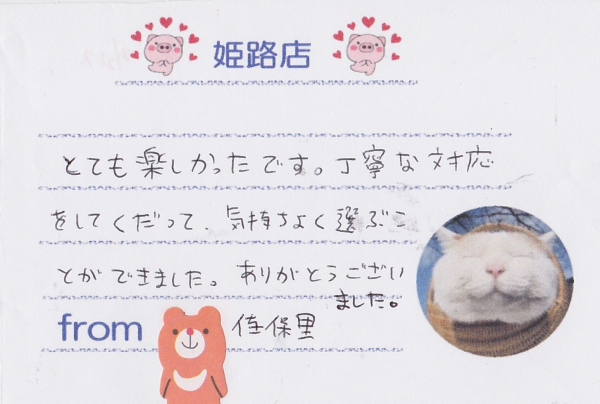 姫路店
とても楽しかったです。丁寧な対応
をしてくだって、気持ちよく選ぶこ
とができました。ありがとうござい
ました。
from 佳保里